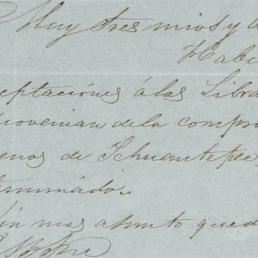 Muy Sres mios y a
Habi
eptaciones á las Libra
provenian de la compra
enos de Tehuantepec
erminado.
Sin mas asunto qued